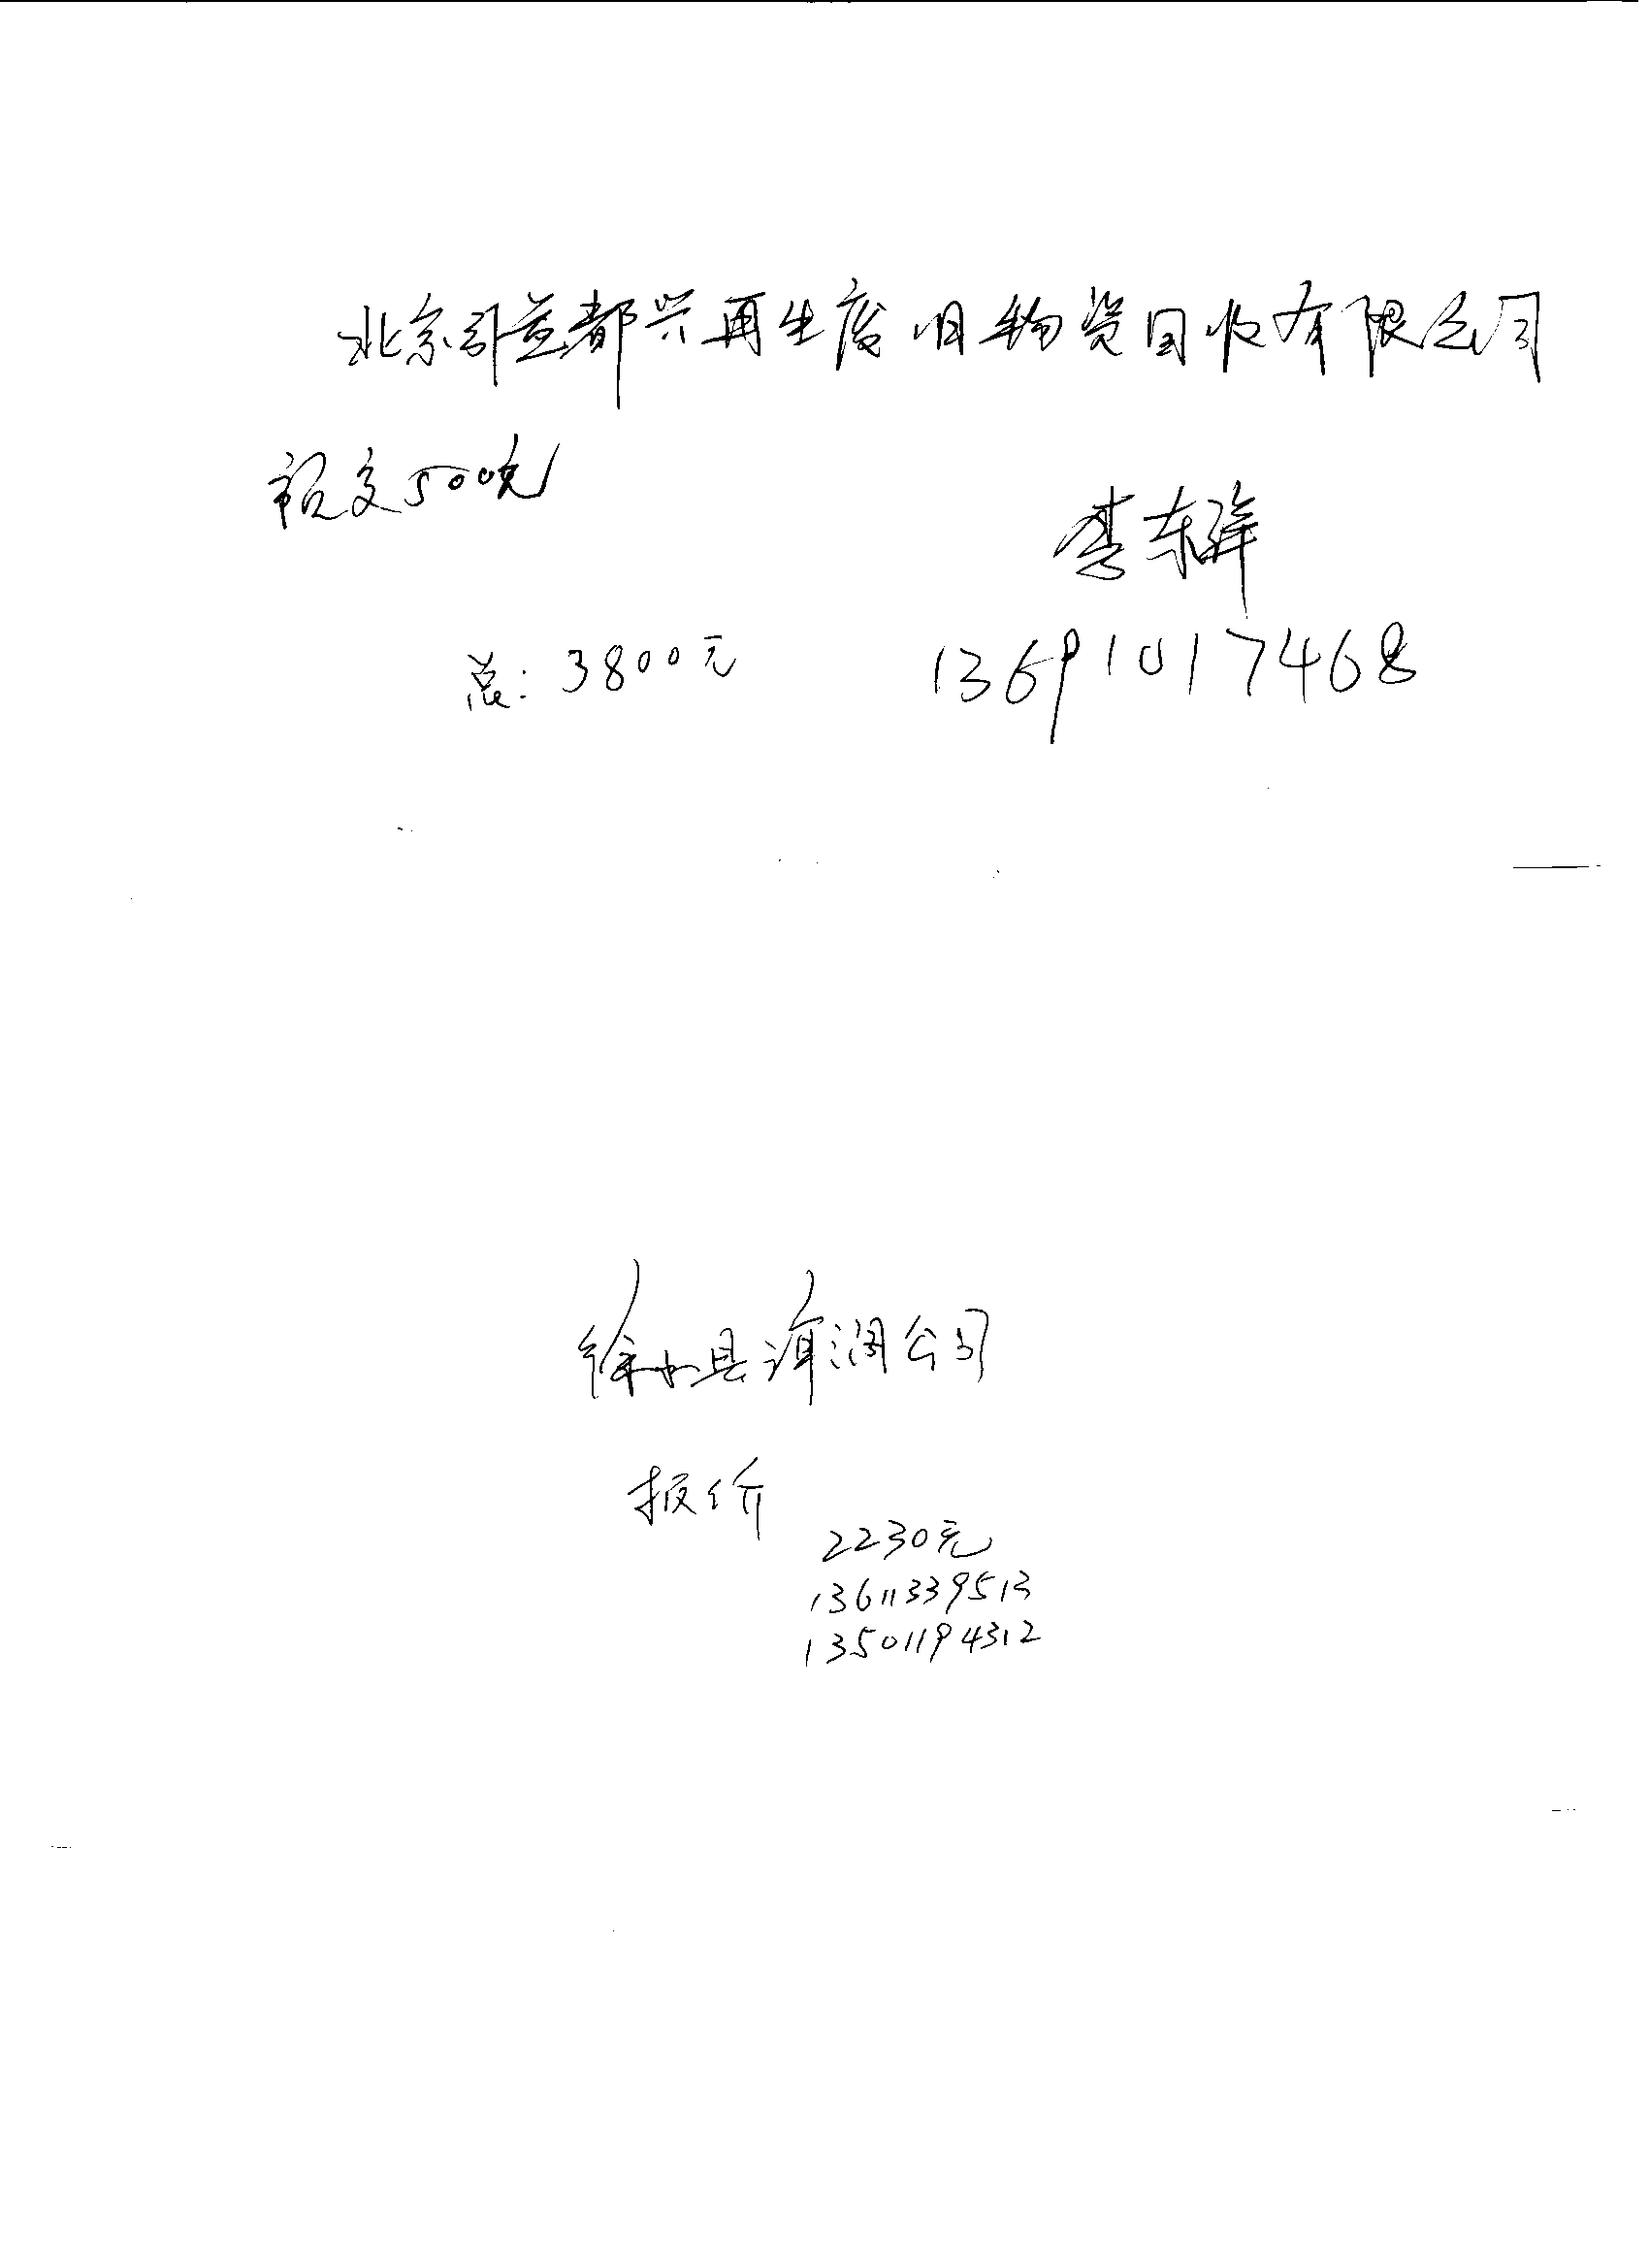 北京引益都兴再生废旧物资回收有限公司
预交500元
李东
总:3800元
13691017468
徐水县润公司
报价
2230元
13611339513
13501194312